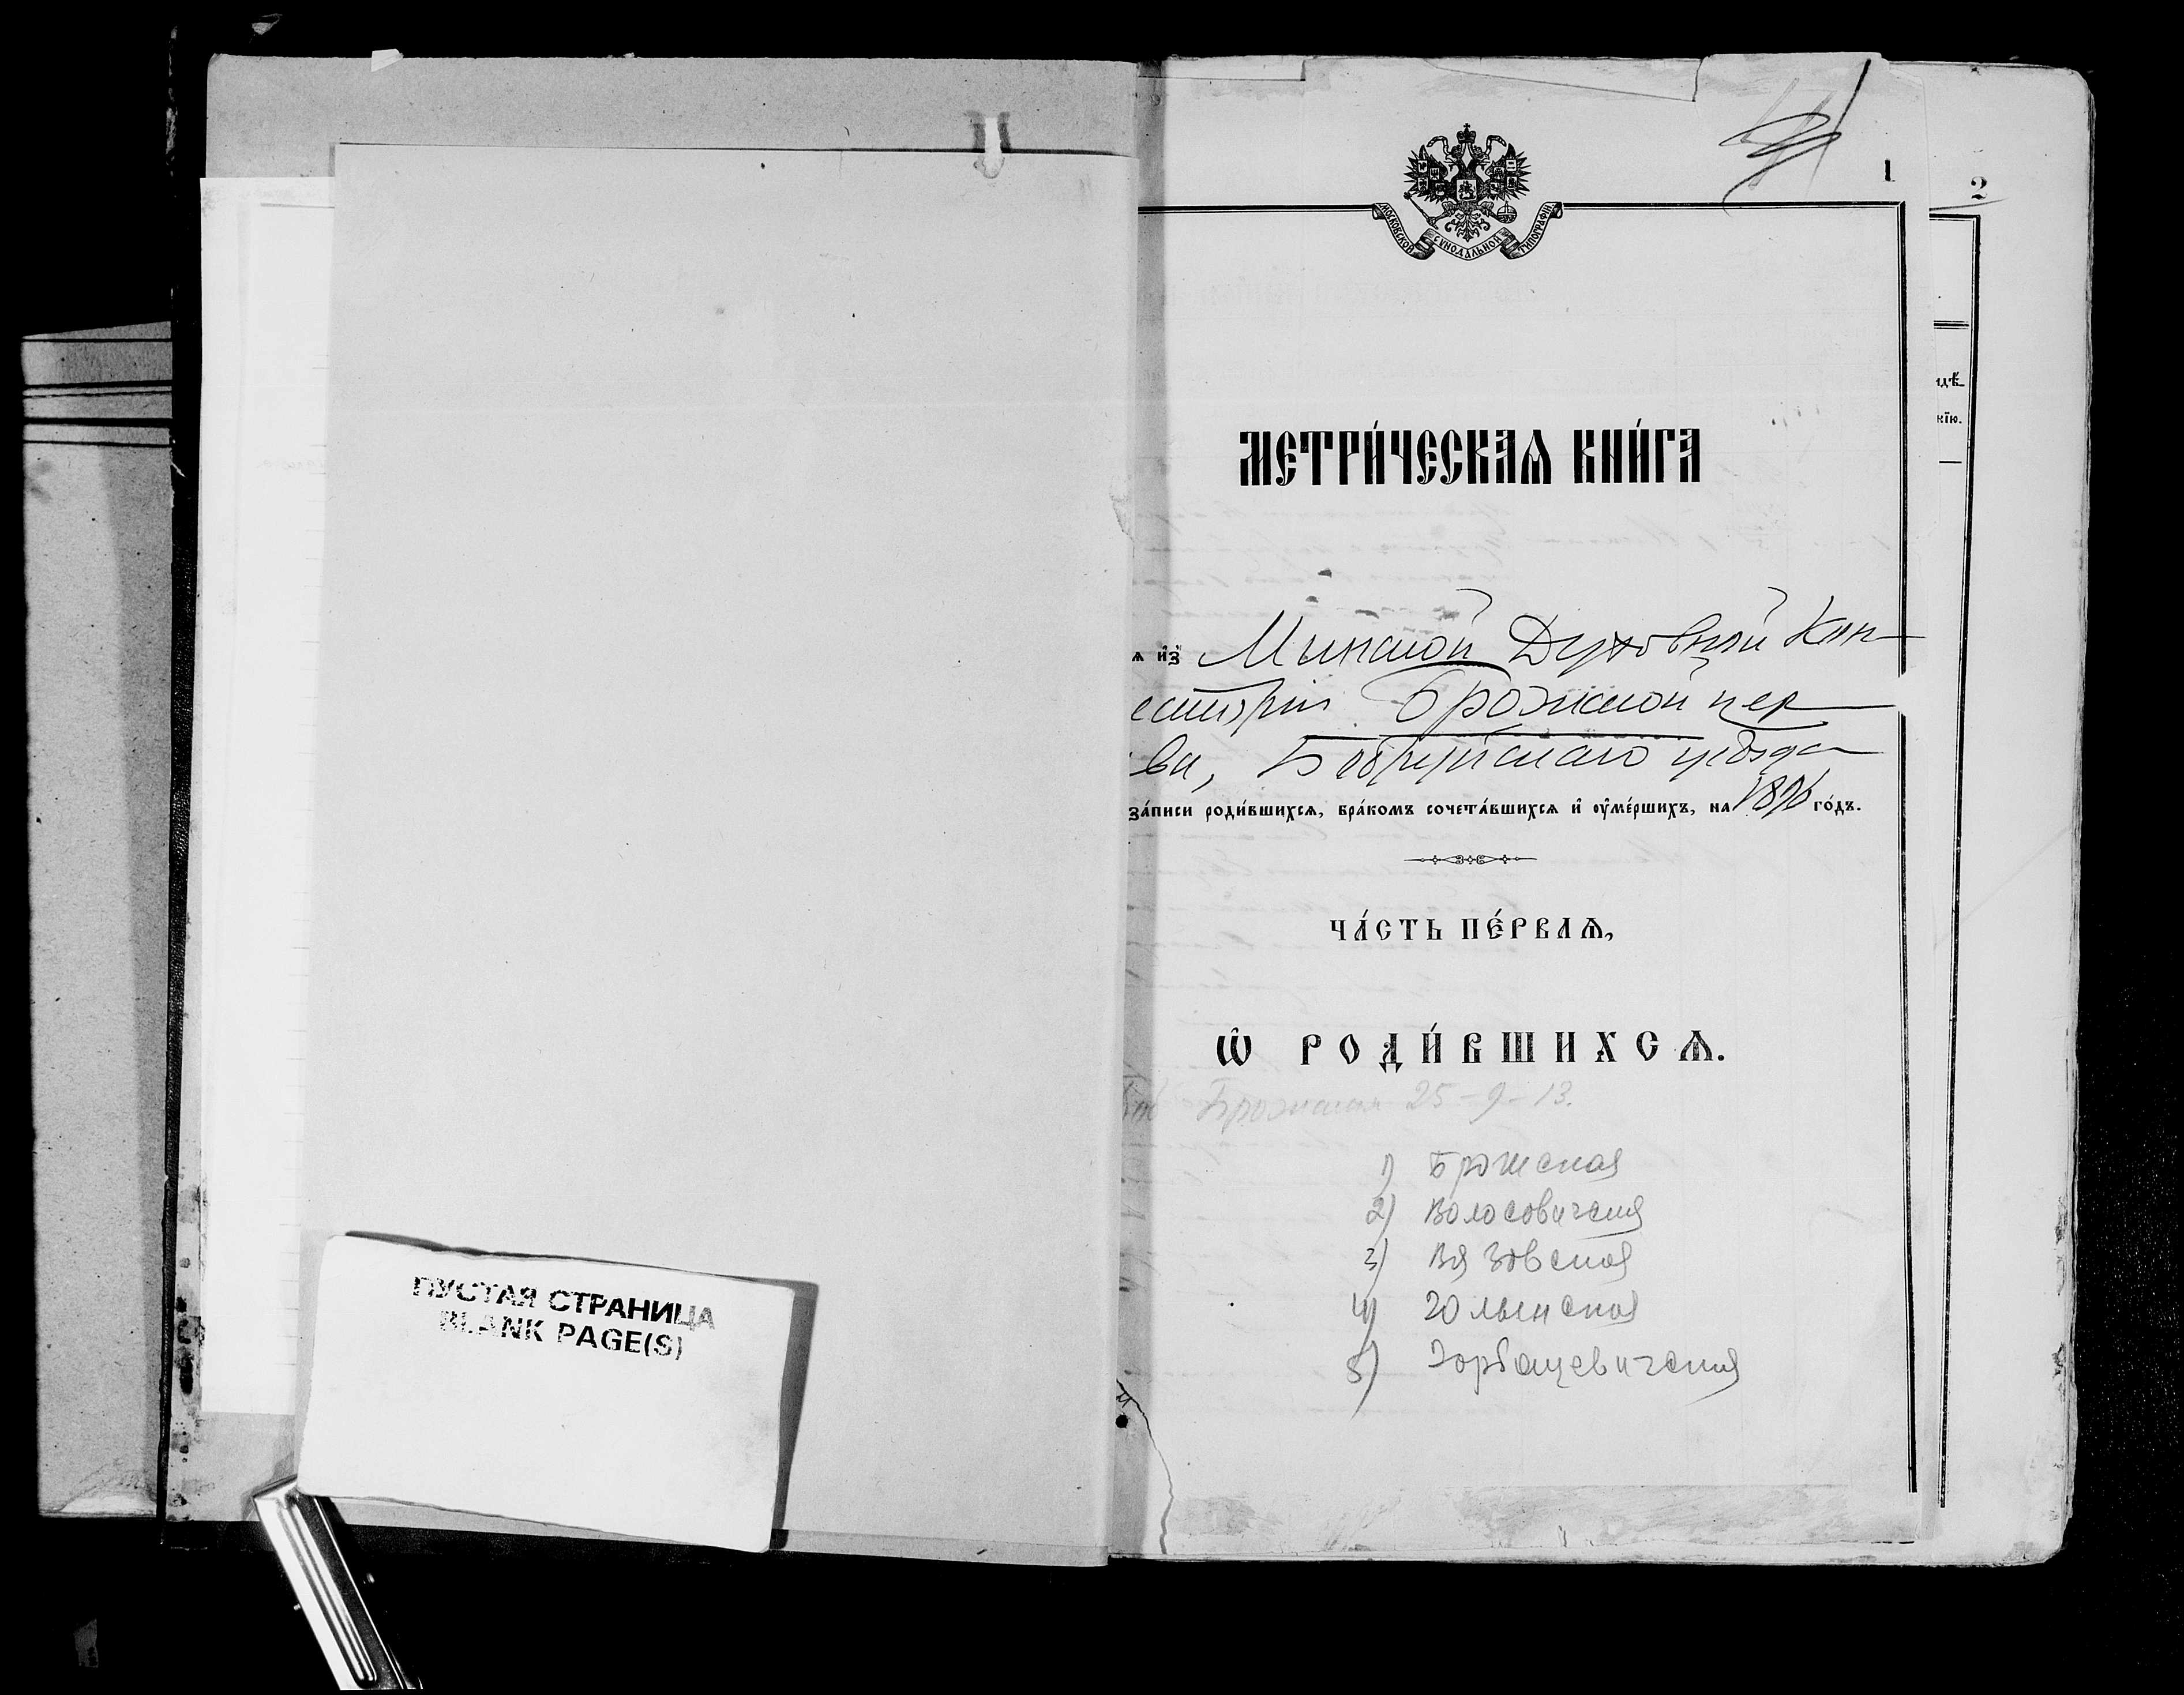 ПУСТАЯ СТРАНИЦА
BLANK PAGE(S)
1
2
МОСКОВСКОЙ СѴНОДАЛЬНОЙ ТИПОГРАФІИ
МЕТРИ́ЧЕСКАѦ КНИ́ГА
ѧ и҆зъ Минской Духовной Кон-
систоріи Брожской цер-
кви, Бобруйскаго уѣзда
за́писи роди́вшихсѧ, бра́комъ сочета́вшихсѧ и҆ ᲂу҆ме́ршихъ, на 1896 го́дъ.
ЧА́СТЬ ПЕ́РВАѦ,
Ѽ РОДИ́ВШИХСѦ.
Брожская 25-9-13.
1) Брожская
2) Волосовичская
3) Вязовская
4) Голынская
5) Горбацевичская
идѣ
нїю.